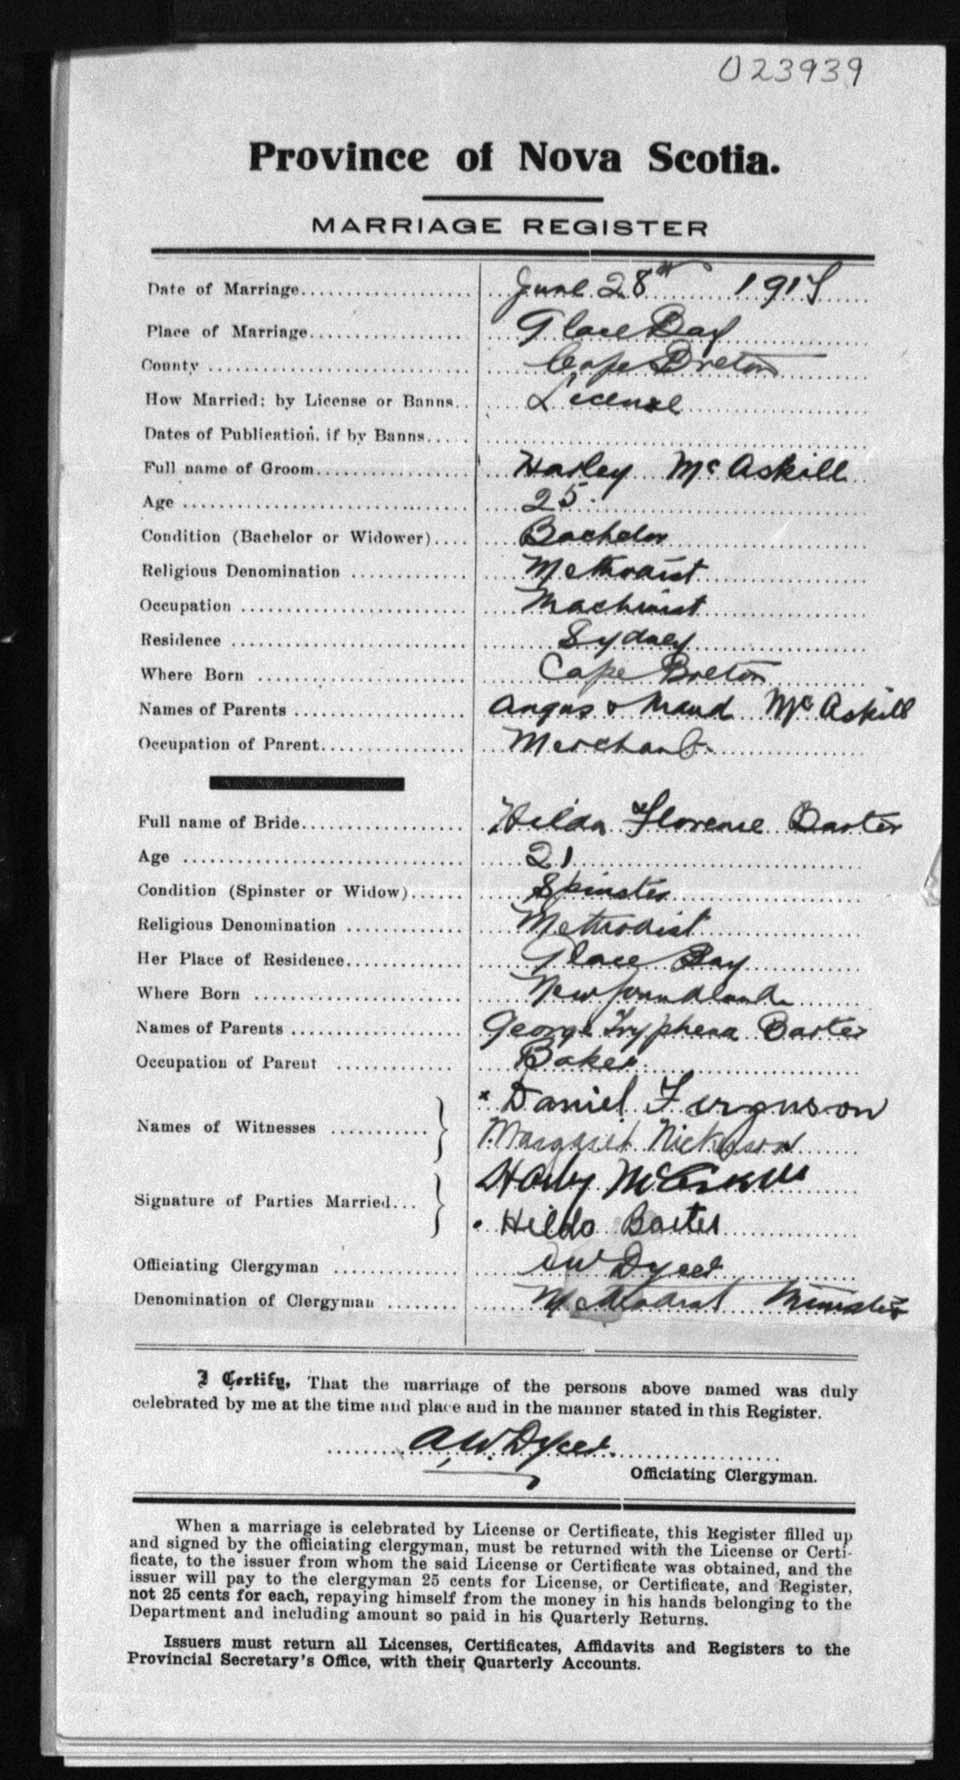 023939
Province of Nova Scotia.
MARRIAGE REGISTER
Date of Marriage.................... June 28th 1917
Place of Marriage.................. Glace Bay
County .............................. Cape Breton
How Married: by License or Banns.. License
Dates of Publication, if by Banns.....
Full name of Groom................. Harley McAskill
Age .............................. 25.
Condition (Bachelor or Widower).... Bachelor
Religious Denomination ............ Methodist
Occupation ........................ Machinist
Residence ......................... Sydney
Where Born ....................... Cape Breton
Names of Parents .................. Angus & Maud McAskill
Occupation of Parent............... Merchant
Full name of Bride................. Hilda Florence Barter
Age .............................. 21
Condition (Spinster or Widow)...... Spinster
Religious Denomination ............ Methodist
Her Place of Residence............. Glace Bay
Where Born ....................... Newfoundland
Names of Parents .................. George Tryphena Barter
Occupation of Parent ............. Baker
x Daniel Ferguson
Names of Witnesses ...........
Margaret Nickerson
Harley McAskill
Signature of Parties Married...
Hilda Barter
Officiating Clergyman ............. A W Dycer
Denomination of Clergyman ........ Methodist Minister
I Certify, That the marriage of the persons above named was duly
celebrated by me at the time and place and in the manner stated in this Register.
A.W. Dycer.
Officiating Clergyman.
When a marriage is celebrated by License or Certificate, this Register filled up
and signed by the officiating clergyman, must be returned with the License or Certi-
ficate, to the issuer from whom the said License or Certificate was obtained, and the
issuer will pay to the clergyman 25 cents for License, or Certificate, and Register,
not 25 cents for each, repaying himself from the money in his hands belonging to the
Department and including amount so paid in his Quarterly Returns.
Issuers must return all Licenses, Certificates, Affidavits and Registers to the
Provincial Secretary's Office, with their Quarterly Accounts.